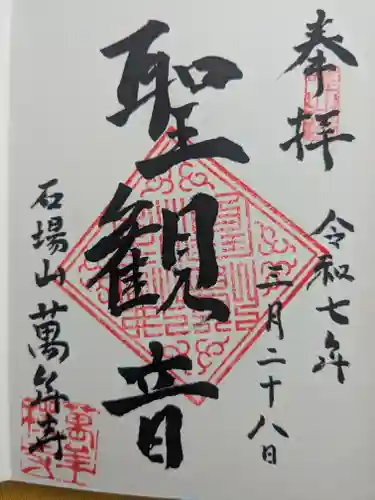 奉拝
令和七年
三月二十八日
聖観音
石場山 萬年寺